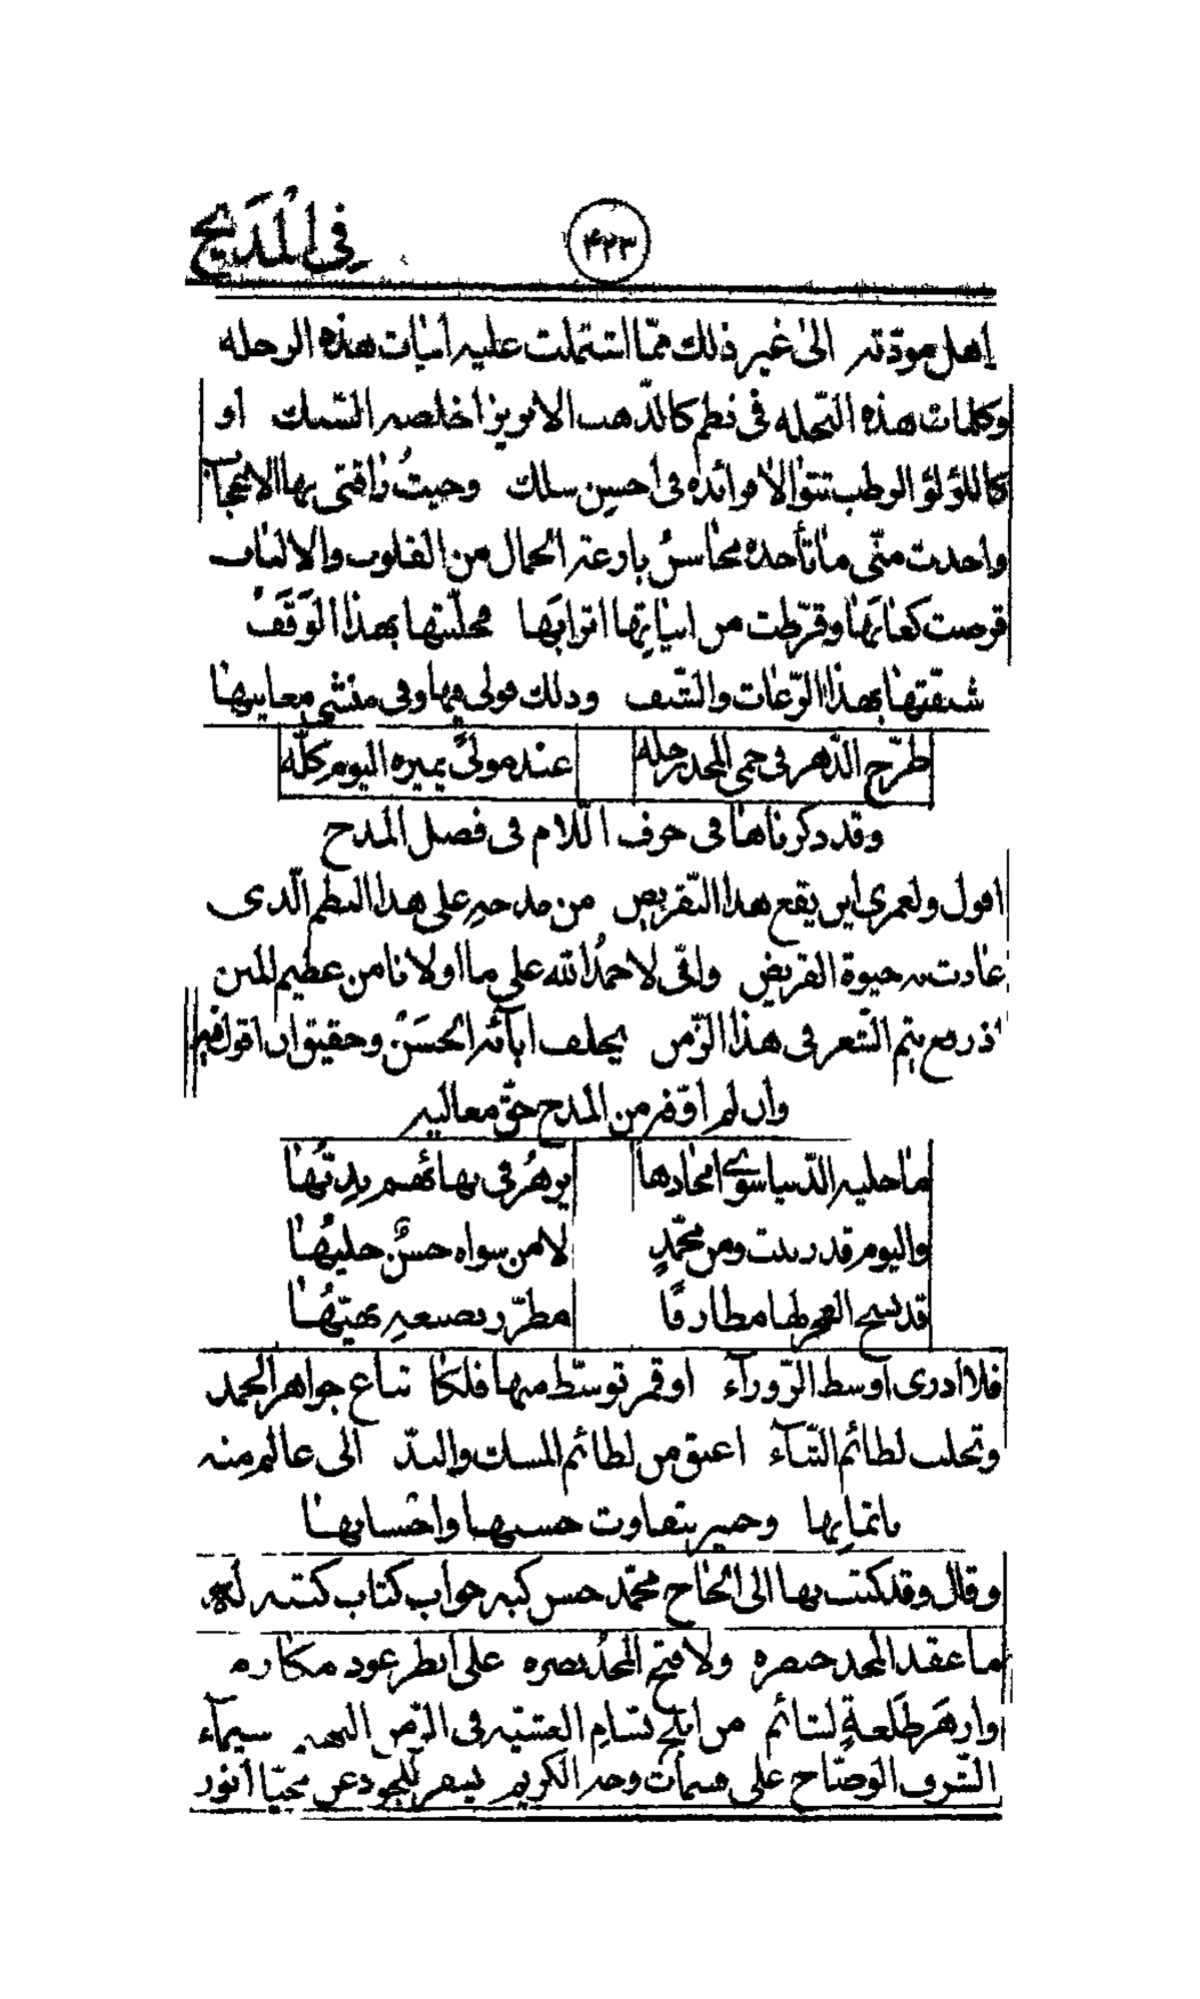 في المَديح
۴۲۳
إهل مودّته الىٰ غير ذلك ممّا اشتملت عليه أبيات هذه الرحله
وكلمات هذه النّحله في نظم كالذّهب الابريز اخلصه السّبك أو
كاللؤلؤ الرطب تتوالا فرائده في أحسن سلك وحيثُ راقتني بها الاعجاب
واخذت منّي ما تأخذه محاسنُ بارعة الجمال من القلوب والالباب
قرصت كعابَها وقرّطت من ابياتِها اترابَها فحلّيتها بهذا الوَقَف
شنّفتها بهذا الرّعات والشّنف وذلك قولي فيها وفي منشي معانيها
طرّح الدّهر في حمى المجد رحله عند مولىً يميره اليوم كلّه
وقد ذكرناها في حرف اللام في فصل المدح
اقول ولعمري اين يقع هذا التّقريض من مدحه على هذا النظم الّذي
عادت به حيوة القريض وانّي لاحمدُ الله على ما اولانا من عظيم المنن
اذ رمع يتم الشّعر في هذا الزّمن بخلف ابآئه الحَسَن وحقيق ان اقول فيه
وان لم اوّفر من المدح حقّ معاليه
ما حلية الدّنيا سوى امجادها يزهرُ في بهائهم بدتهُا
واليوم قد زينت ومن محمّدٍ لا من سواه حسنٌ حليهُا
قد نسج الفخر لها مطارفًا مطرّز بصنعه بهيّهُا
فلا أدرى آوسط الزّورآء او قمر توسّط منها فلكا تباع جواهر الحمد
وتجلب لطائم الثنآء اعبق من لطائم المسك والندّ الى عالم منه
باثمانها وخبير بتفاوت حسبها واحسابها
وقال وقد كتب بها الى الحاج محمّد حسن كبه جواب كتاب كتبه له
ما عقد المجد خنصره ولا فتح المجدُ بصره على أنظر عود مكارم
وازهَر طَلعةٍ لشائم من ابلج بسّامِ العشيّه في الزّمن البهيم سيمآء
الشّرف الوضّاح على قسمات وجه الكريم يسفر للجود عن محيّا أنور